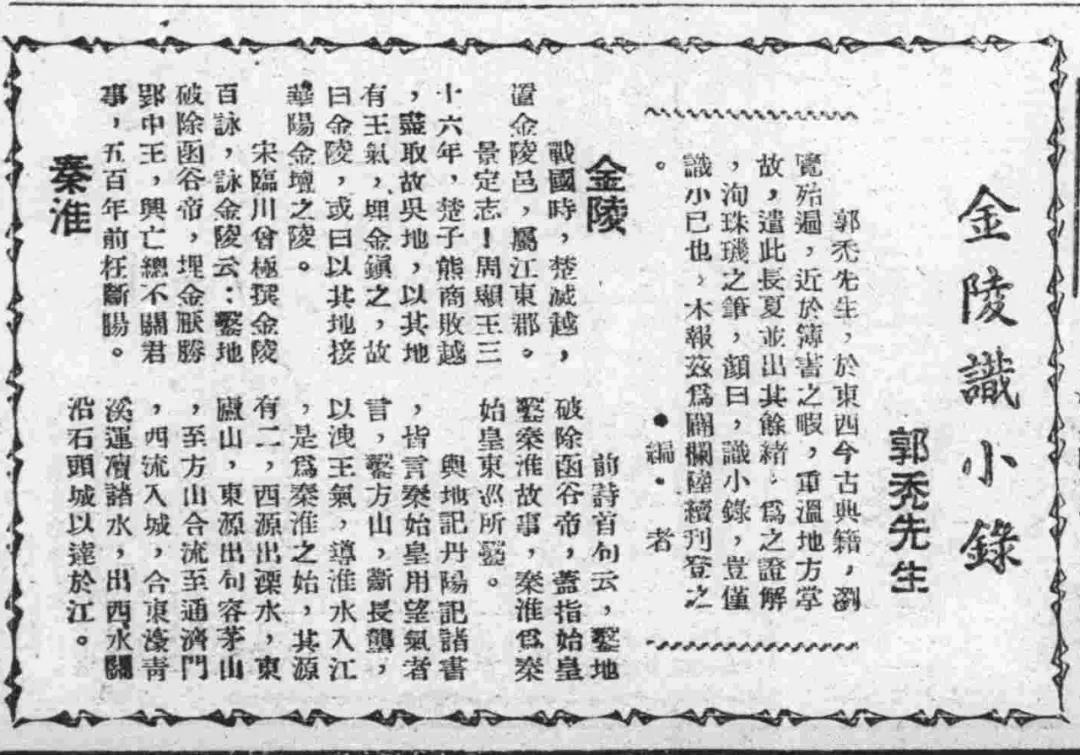 金陵識小錄
郭禿先生
郭禿先生，於東西今古典籍，瀏
覽殆遍，近於簿書之暇，重溫地方掌
故，遣此長夏並出其餘緒，爲之證解
，洵珠璣之筆，顏曰，識小錄，豈僅
識小已也，本報茲爲闢欄陸續刊登之
。
●編．者
金陵
戰國時，楚滅越，
置金陵邑，屬江東郡。
景定志！周顯王三
十六年，楚子熊商敗越
，盡取故吳地，以其地
有王氣，埋金鎭之，故
曰金陵，或曰以其地接
華陽金壇之陵。
宋臨川曾極撰金陵
百詠，詠金陵云：鑿地
破除函谷帝，埋金厭勝
郢中王，興亡總不關君
事，五百年前枉斷腸。
秦淮
前詩首句云，鑿地
破除函谷帝，蓋指始皇
鑿秦淮故事，秦淮爲秦
始皇東巡所鑿。
輿地記丹陽記諸書
，皆言秦始皇用望氣者
言，鑿方山，斷長壟，
以洩王氣，導淮水入江
，是爲秦淮之始，其源
有二，西源出溧水，東
廬山，東源出句容茅山
，至方山合流至通濟門
，西流入城，合東濠青
溪運瀆諸水，出西水關
沿石頭城以達於江。